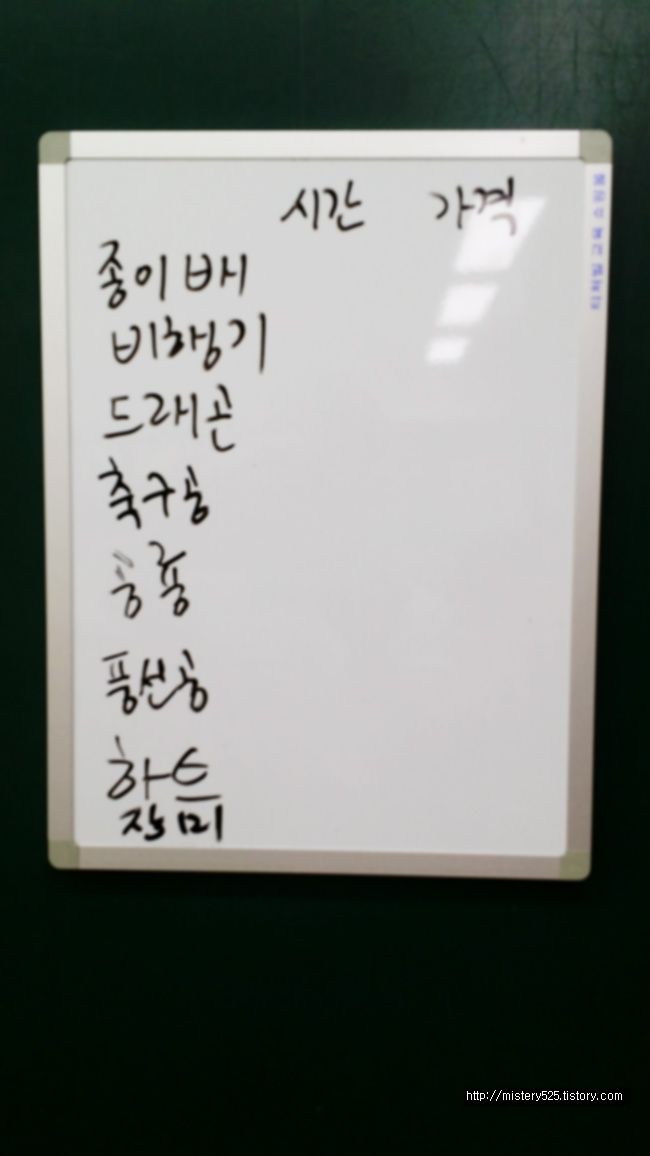 시간 가격
종이배
비행기
드래곤
축구공
공룡
풍선공
하트
장미
http://mistery525.tistory.com